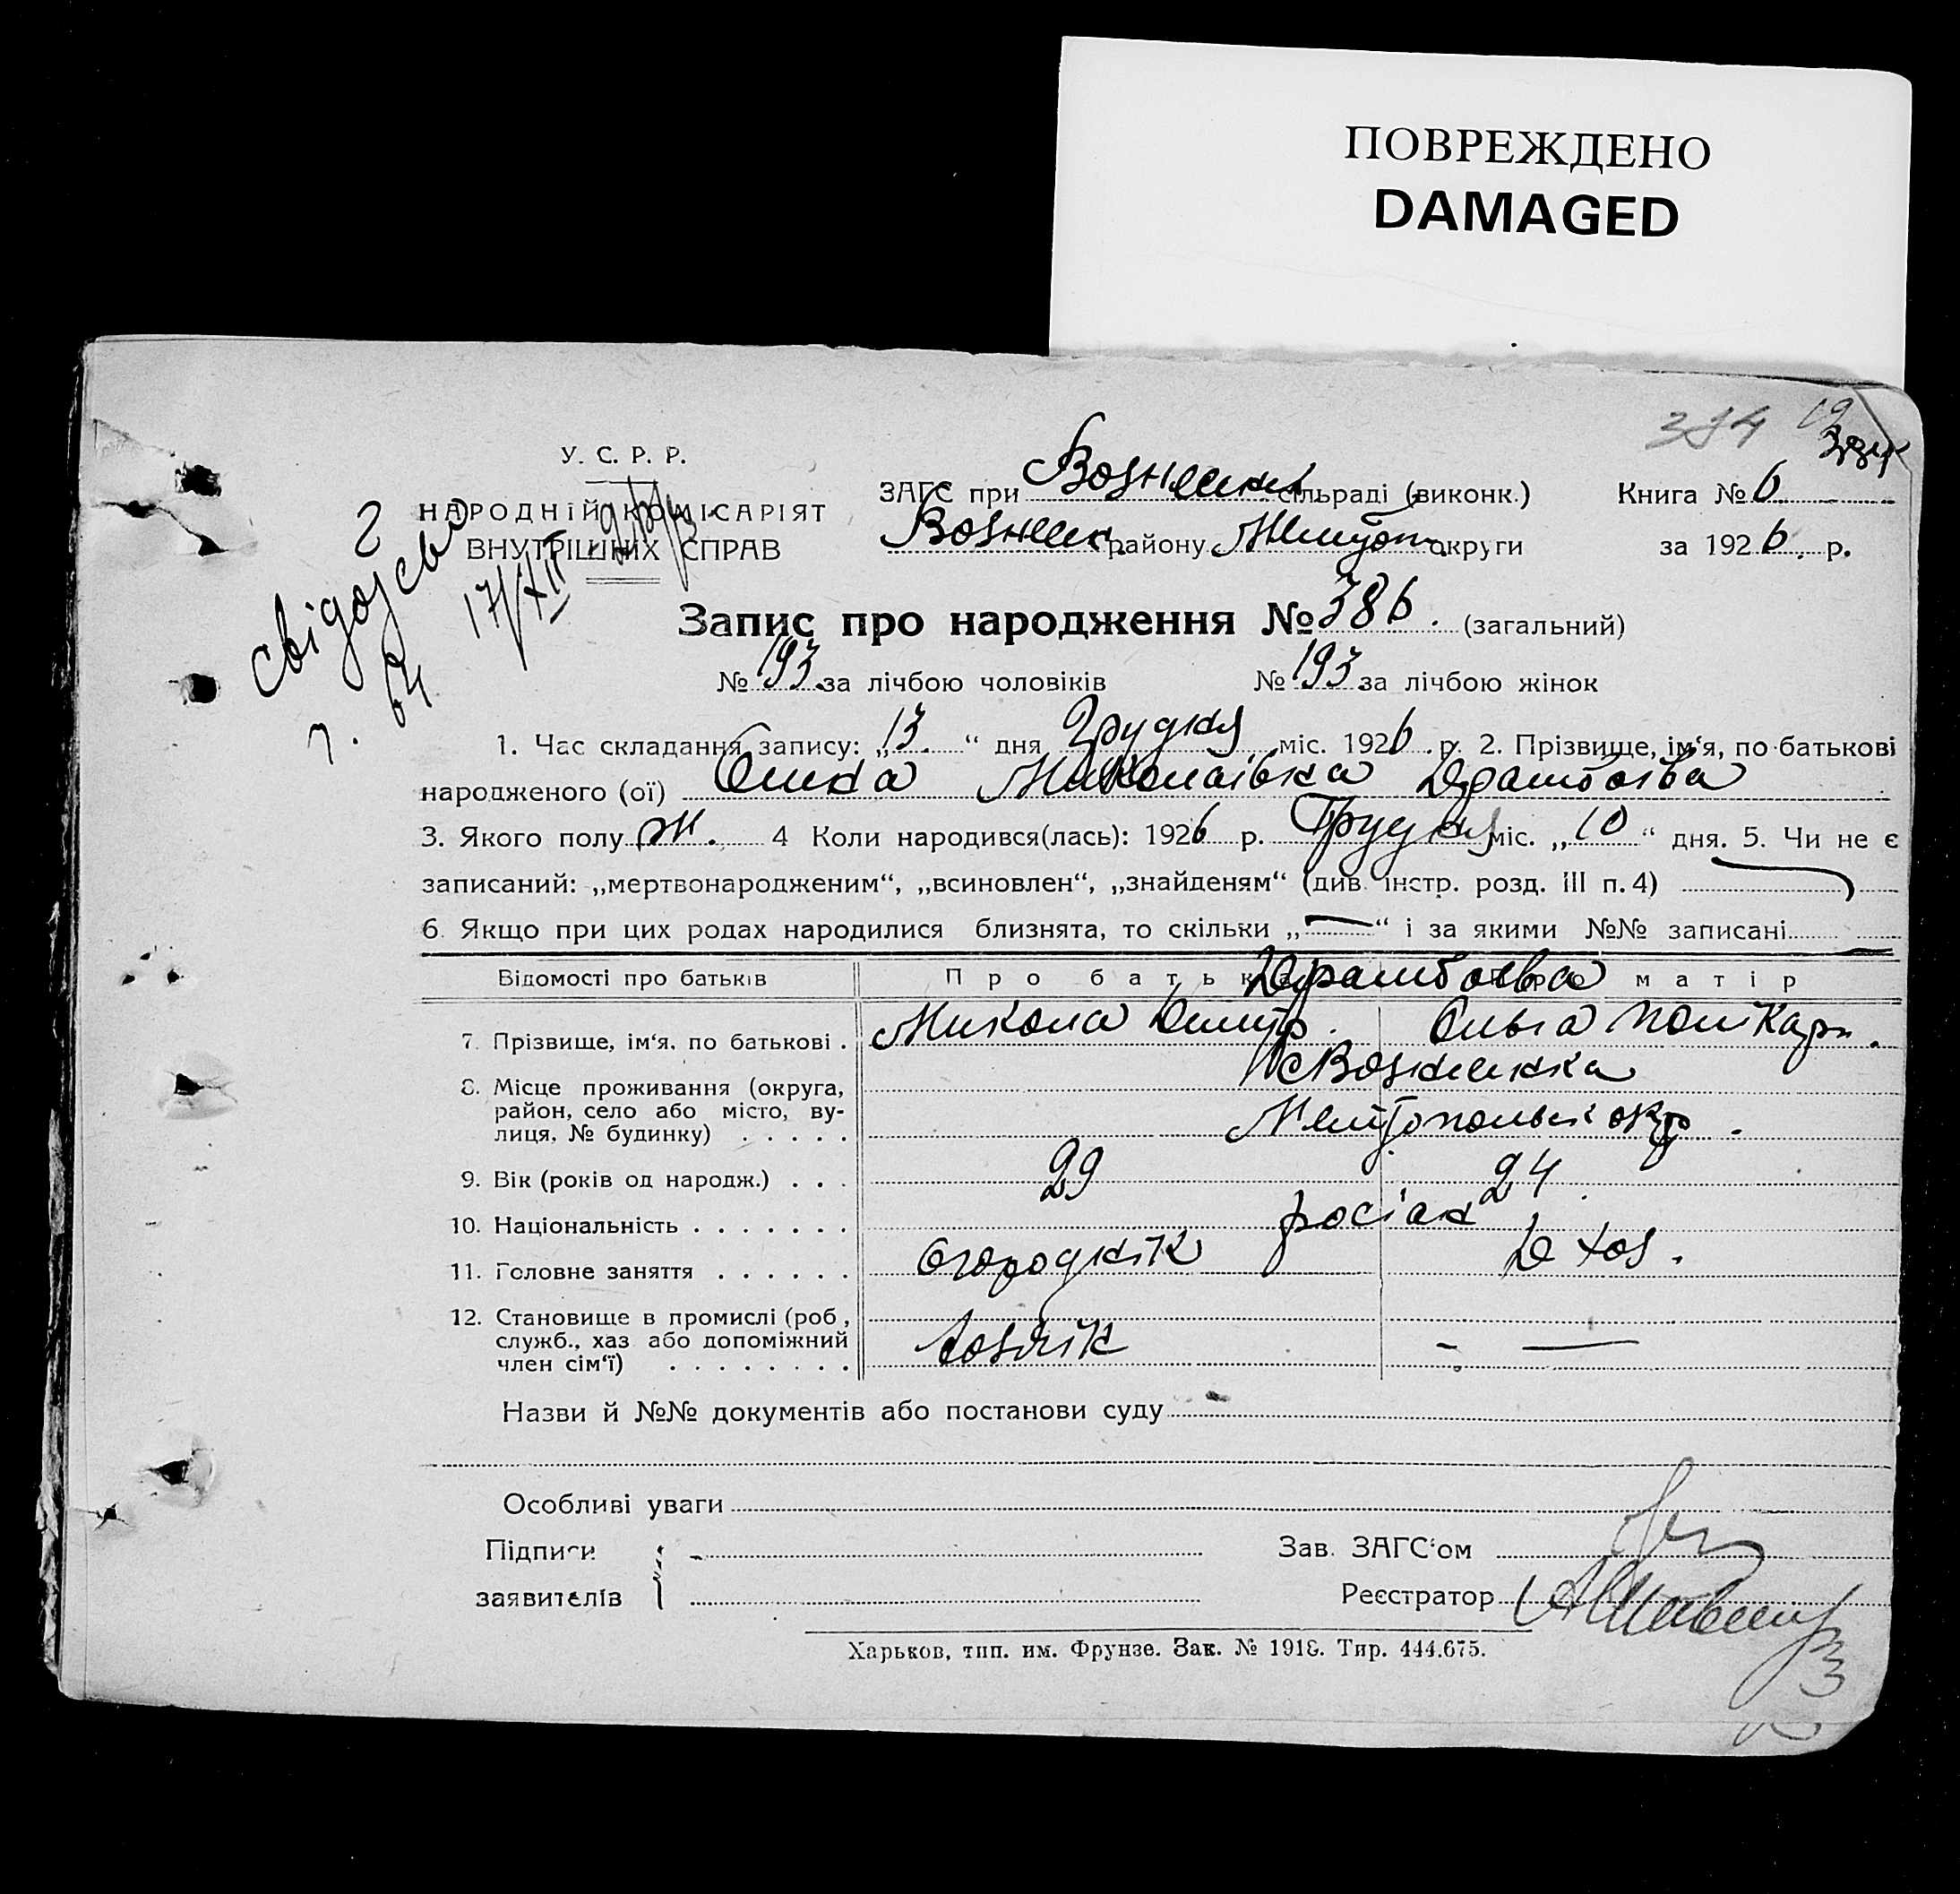 ПОВРЕЖДЕНО
DAMAGED
394
У. С. Р. Р.
НАРОДНІЙ КОМІСАРІЯТ
ВНУТРІШНІХ СПРАВ
17/XII
ЗАГС при Вознесенск сільраді (виконк.) Книга № 6
Вознесен. району Меліт. округи за 1926. р.
Запис про народження № 386. (загальний)
№ 193 за лічбою чоловіків № 193 за лічбою жінок
1. Час складання запису: „13.“ дня Грудня міс. 1926 р. 2. Прізвище, ім‘я, по-батькові
народженого (ої) Миколаівна
3. Якого полу ж. 4 Коли народився(лась): 1926 р. Грудня міс. „10“ дня. 5. Чи не є
записаний: „мертвонародженим“, „всиновлен“, „знайденям“ (див. інстр. розд. III п. 4)
6. Якщо при цих родах народилися близнята, то скільки „—“ і за якими №№ записані —
Відомості про батьків Про батька Про матір
7. Прізвище, ім‘я, по батькові . Микола Дмитр. Ольга Полікарп.
8. Місце проживання (округа, Вознесенка
район, село або місто, ву-
лиця, № будинку) . . . . . Мелітопольск окр.
9. Вік (років од народж.) . . . 29 24
10. Національність . . . . . . . росіян
11. Головне заняття . . . . . . Огородник Д хоз.
12. Становище в промислі (роб,
служб., хаз або допоміжний хозяїн —
член сім‘ї) . . . . . . . .
Назви й №№ документів або постанови суду
Особливі уваги
Підписи Зав. ЗАГС‘ом
заявителів Реєстратор
Харьков, тип. им. Фрунзе. Зак. № 1918. Тир. 444.675.